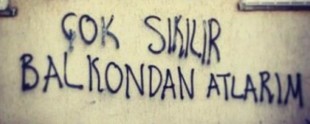 ÇOK SIKILIR
BALKONDAN ATLARIM